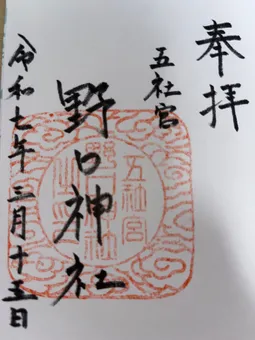 奉拝
五社宮
野口神社
令和七年三月十五日
五社宮